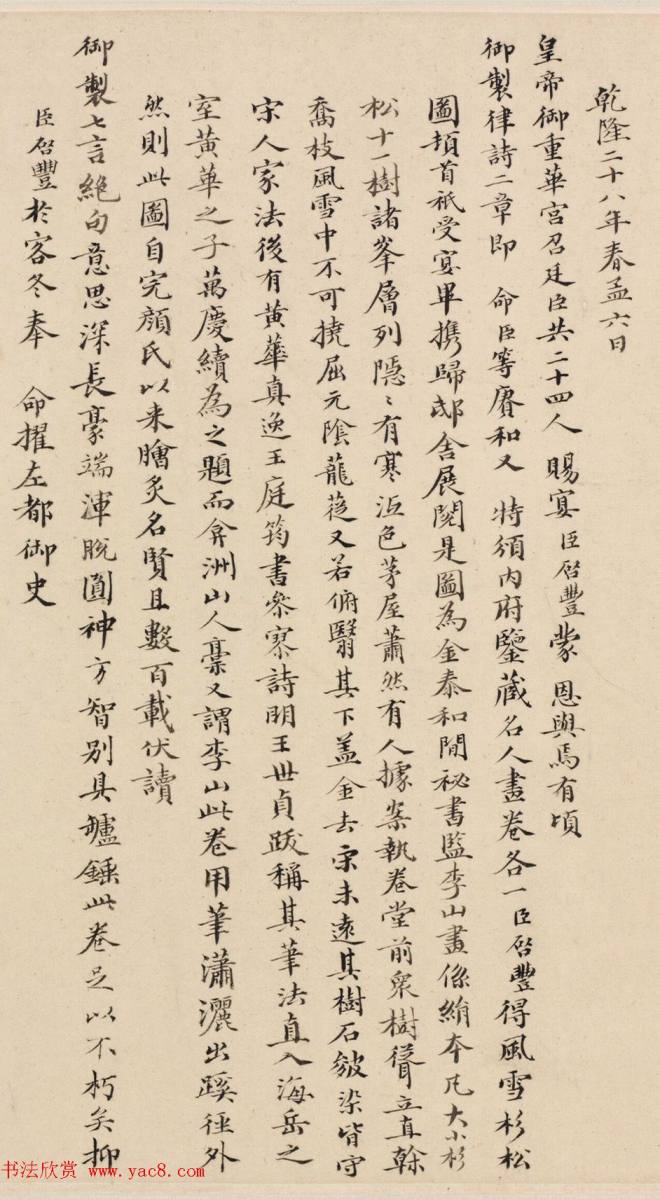 乾隆二十八年春孟六日
皇帝御重華宮召廷臣共二十四人 賜宴臣啓豐蒙 恩與焉有頃
御製律詩二章即 命臣等賡和又 特頒内府鑒藏名人畫卷各一臣啓豐得風雪杉松
圖頓首祇受宴畢携歸邸舍展閱是圖為金泰和間祕書監李山畫係絹本凡大小杉
松十一樹諸峯層列隱〻有寒沍色茅屋蕭然有人據案執卷堂前衆樹聳立直榦
喬枝風雪中不可撓屈元陰蘢蓯又若俯翳其下盖金去宋未遠其樹石皴染皆守
宋人家法後有黃華真逸王庭筠書參寥詩明王世貞跋稱其筆法直入海岳之
室黃華之子萬慶續為之題而弇洲山人藁又謂李山此卷用筆瀟灑出蹊徑外
然則此圖自完顔氏以来膾炙名賢且數百載伏讀
御製七言絶句意思深長豪端渾脫圓神方智別具罏錘此卷足以不朽矣抑
臣啓豐於客冬奉 命擢左都御史
书法欣赏 www.yac8.com